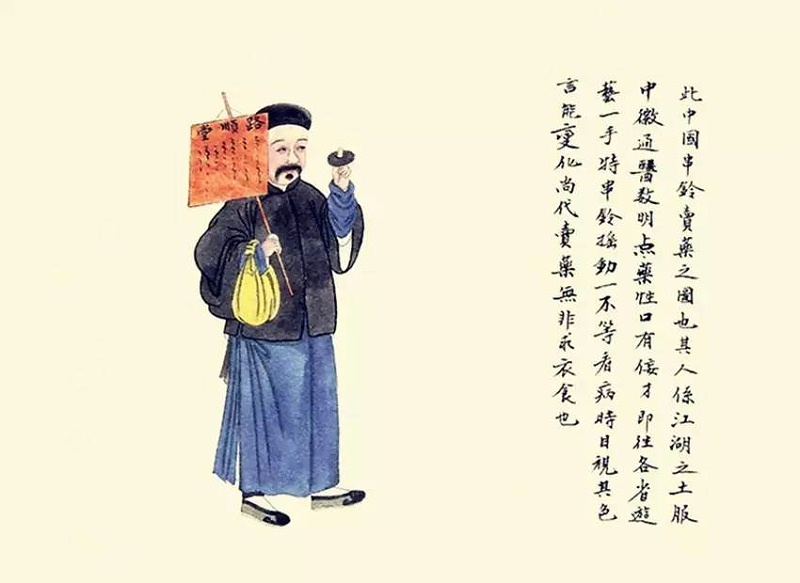 此中國串鈴賣藥之圖也其人係江湖之士服
中微通醫数明点藥性口有倿才即往各省遊
藝一手持串鈴摇動一不等看病時目視其色
言能變化尚代賣藥無非求衣食也
路順堂